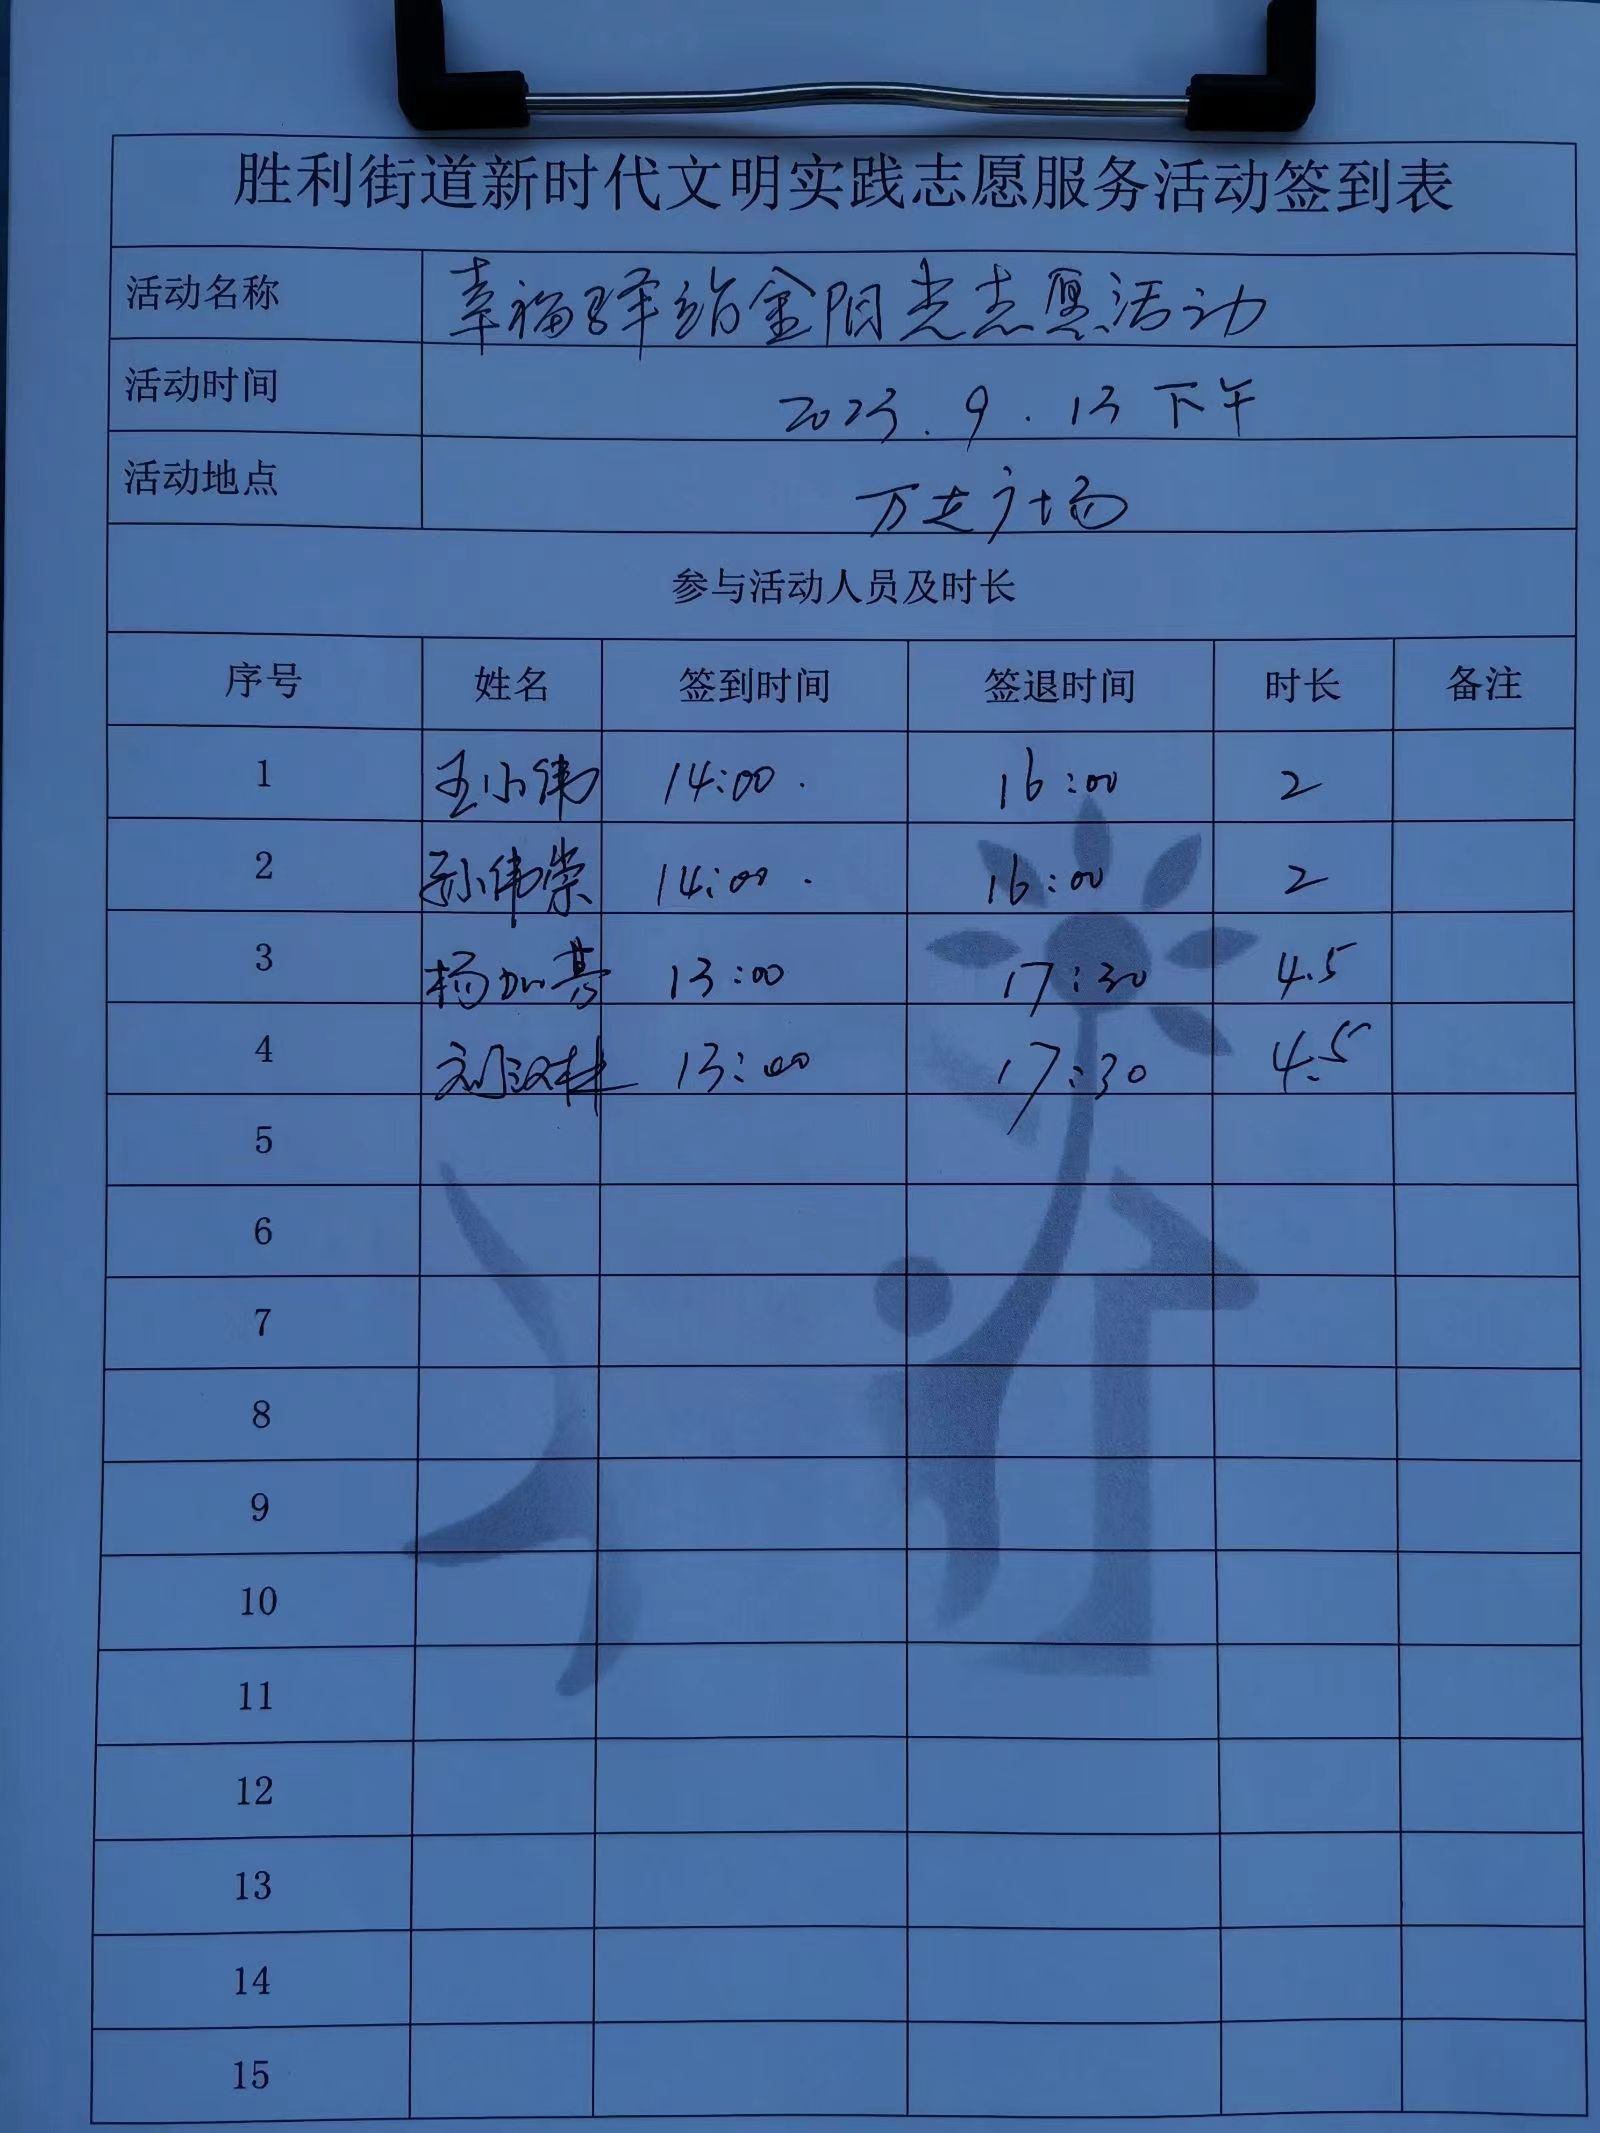 胜利街道新时代文明实践志愿服务活动签到表
活动名称 幸福驿站金阳光志愿活动
活动时间 2023.9.13下午
活动地点 万达广场
参与活动人员及时长
序号 姓名 签到时间 签退时间 时长 备注
1 王小伟 14:00. 16:00 2
2 孙伟崇 14:00. 16:00 2
3 杨加 13:00 17:30 4.5
4 刘汉林 13:00 17:30 4.5
5
6
7
8
9
10
11
12
13
14
15